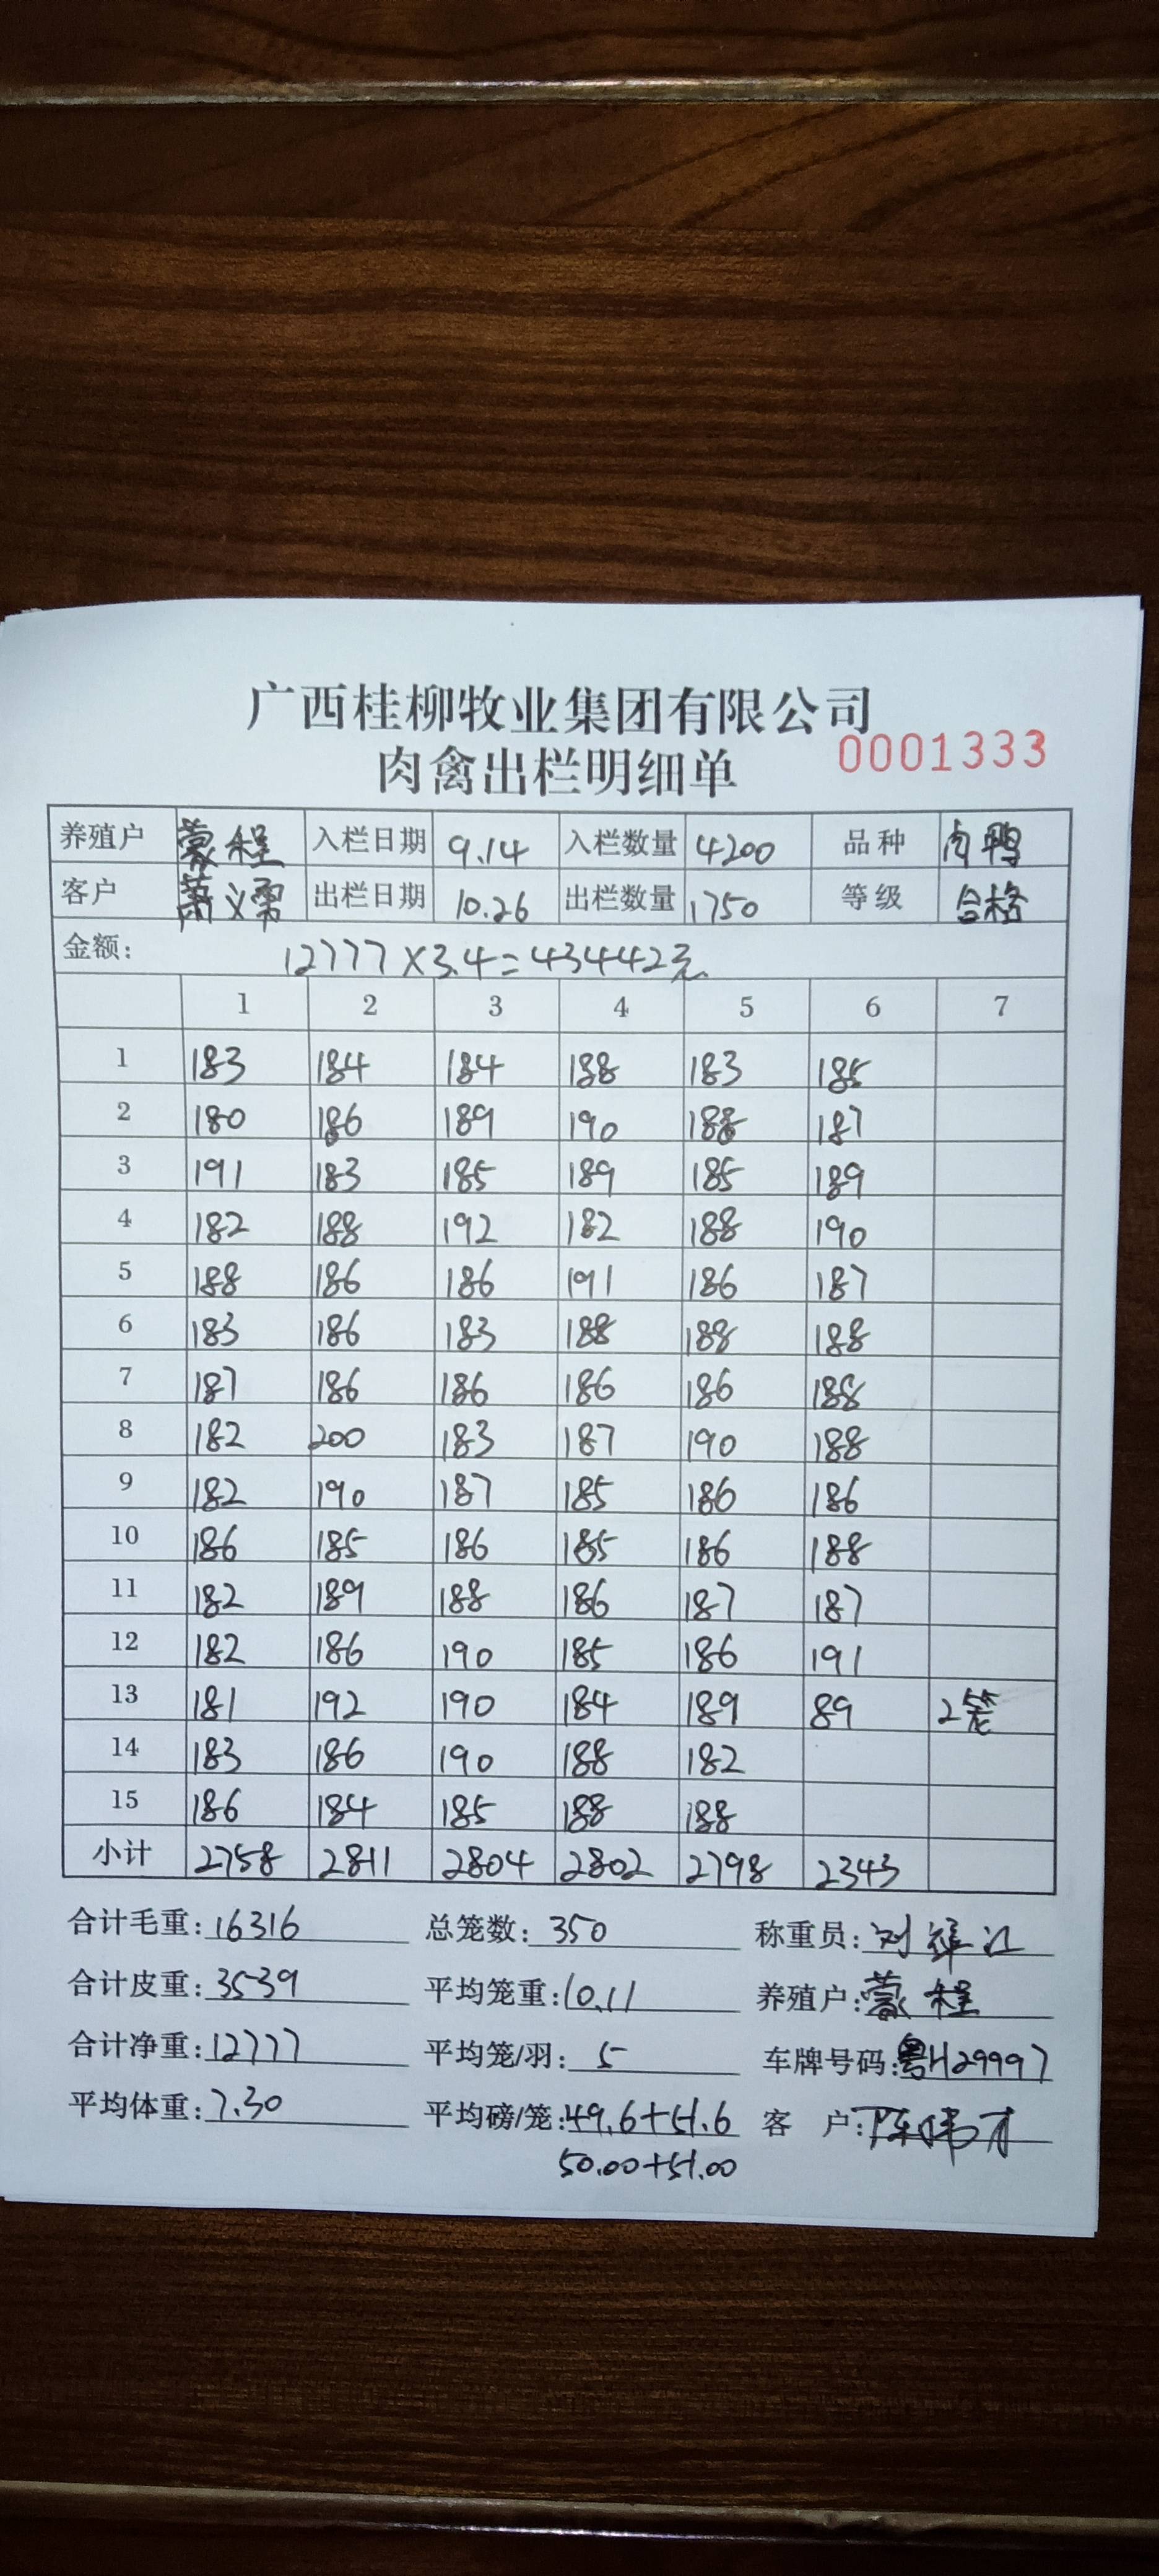 广西桂柳牧业集团有限公司
肉禽出栏明细单 0001333
养殖户 蒙程 入栏日期 9.14 入栏数量 4200 品种 肉鸭
客户 萧义荣 出栏日期 10.26 出栏数量 1750 等级 合格
金额: 12777×3.4=43442元
1 2 3 4 5 6 7
1 183 184 184 188 183 185
2 180 186 189 190 188 187
3 191 183 185 189 185 189
4 182 188 192 182 188 190
5 188 186 186 191 186 187
6 183 186 183 188 188 188
7 187 186 186 186 186 188
8 182 200 183 187 190 188
9 182 190 187 185 186 186
10 186 185 186 185 186 188
11 182 189 188 186 187 187
12 182 186 190 185 186 191
13 181 192 190 184 189 89 2笼
14 183 186 190 188 182
15 186 184 185 188 188
小计 2758 2811 2804 2802 2798 2343
合计毛重:16316 总笼数:350 称重员:刘
合计皮重:3539 平均笼重:10.11 养殖户:蒙程
合计净重:12777 平均笼/羽:5 车牌号码:粤H29997
平均体重:7.30 平均磅/笼:49.6+51.6 客 户:陈伟才
50.00+51.00